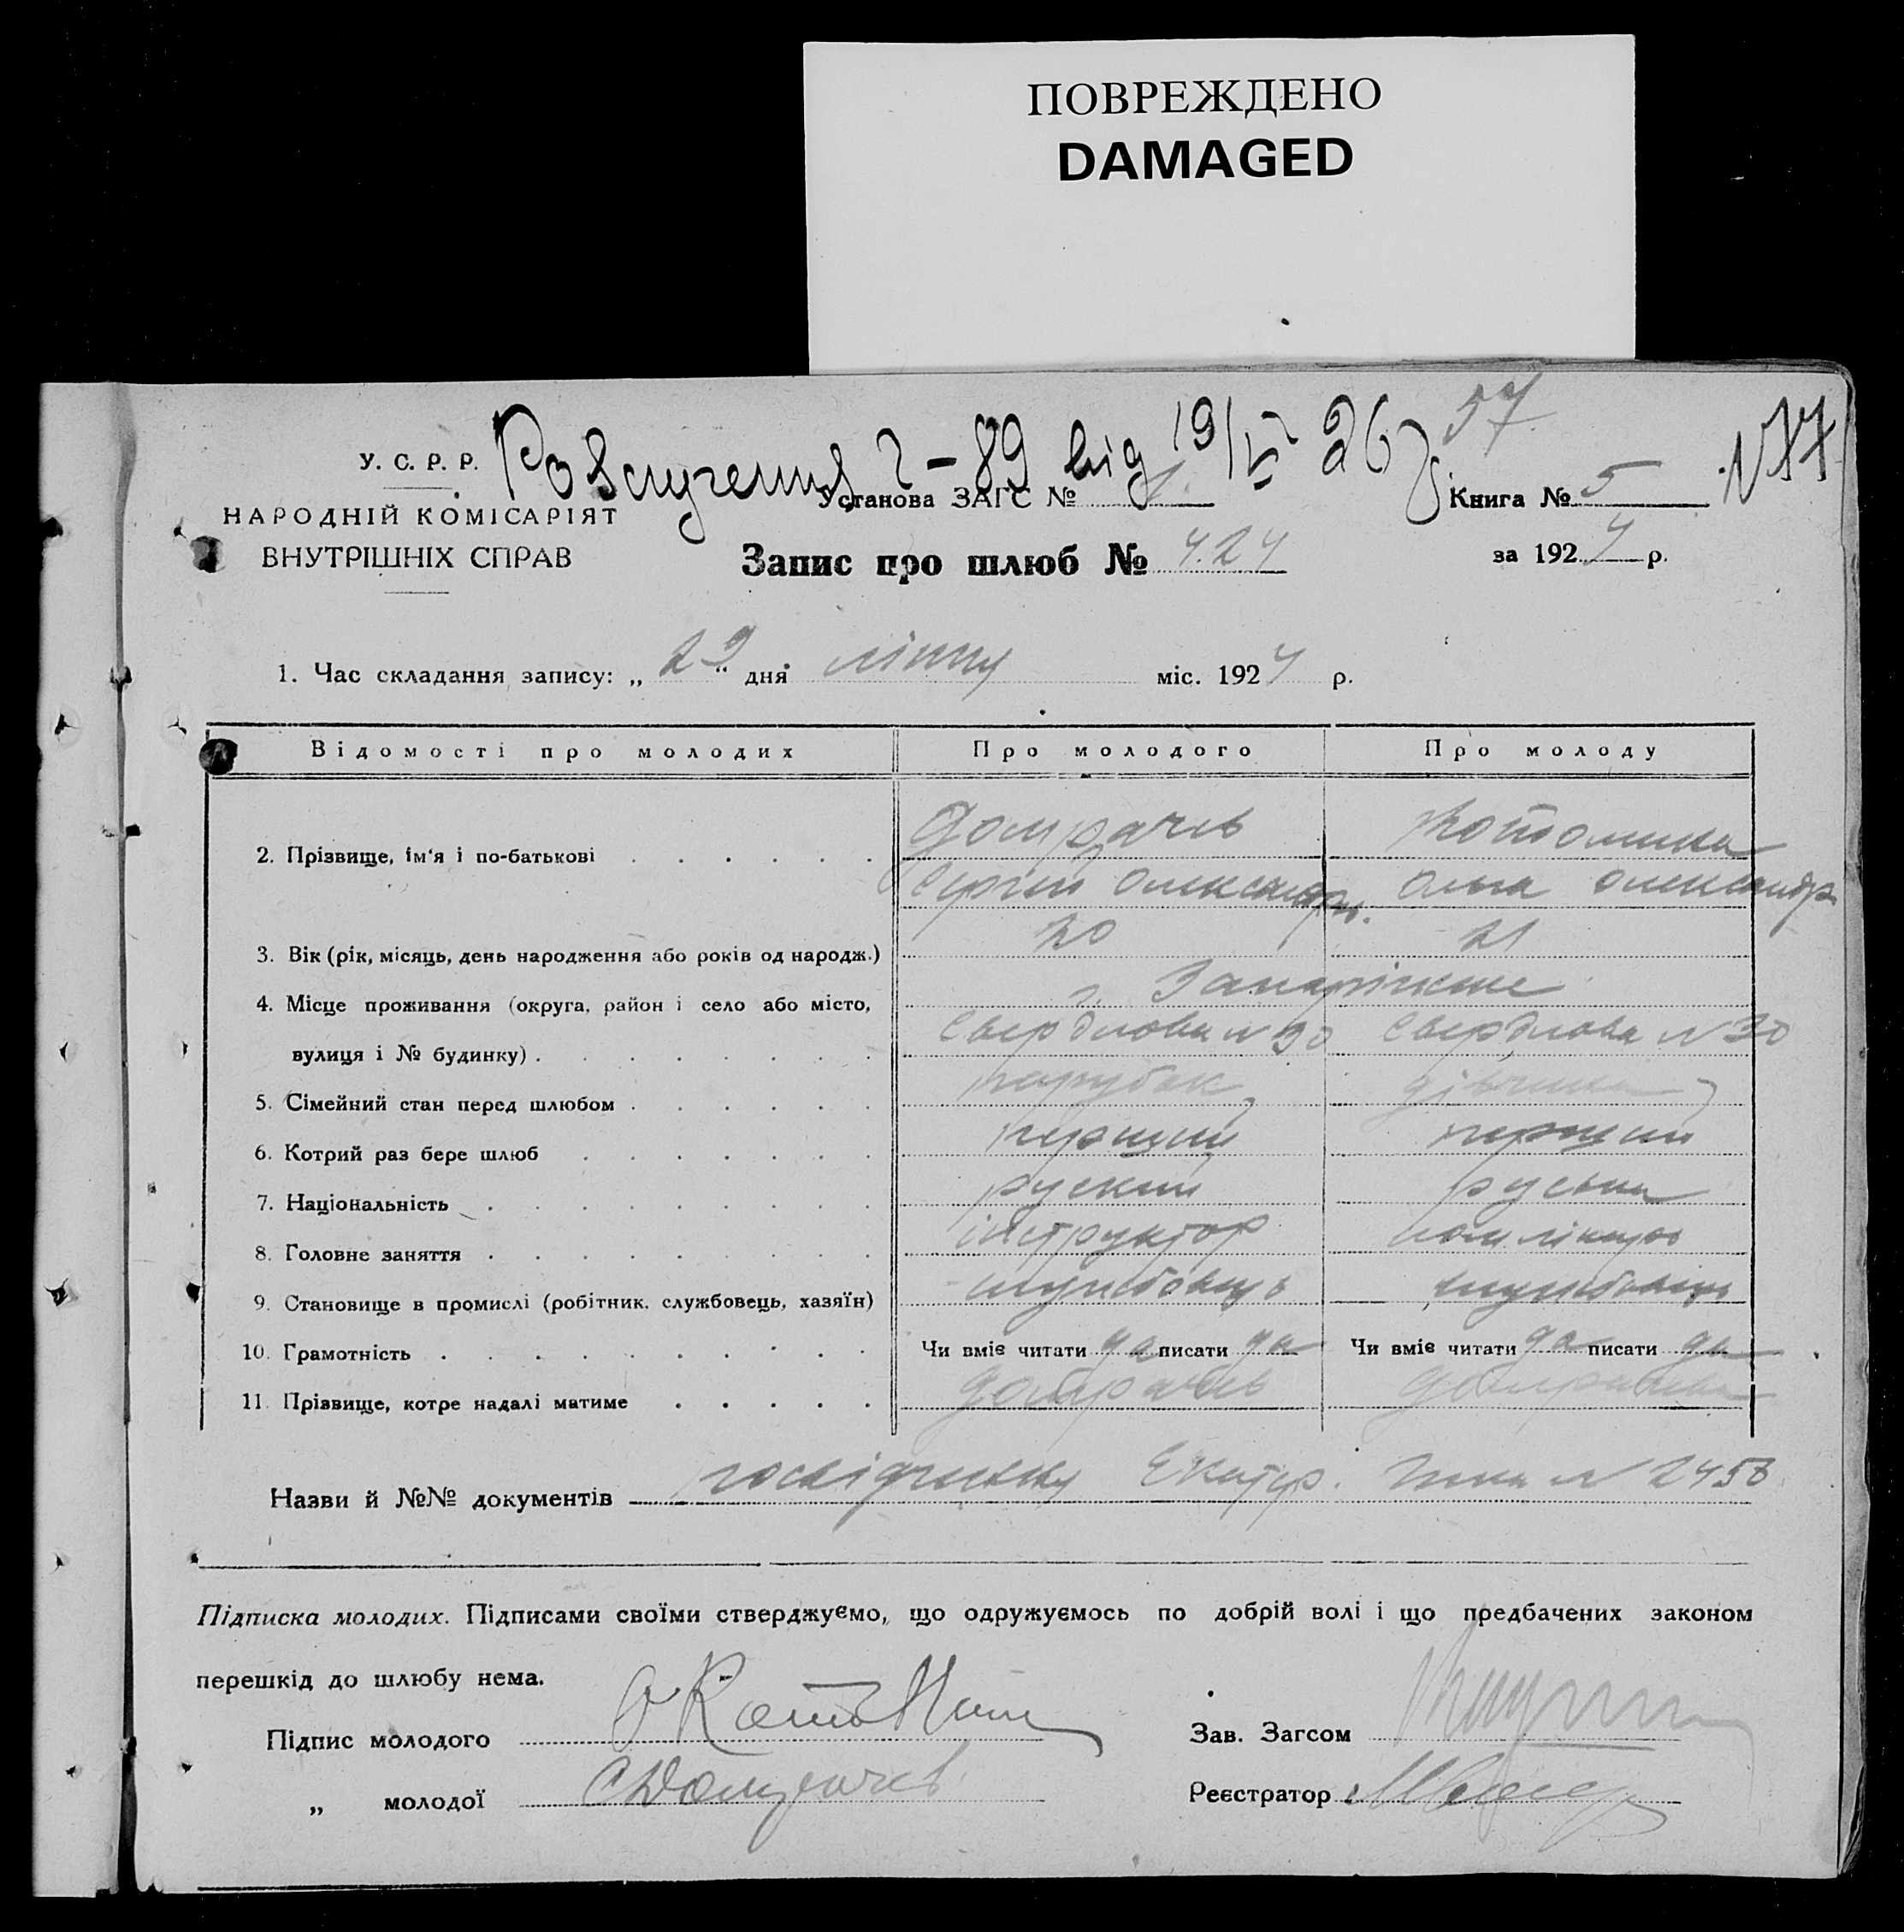 ПОВРЕЖДЕНО
DAMAGED
57
У. С. Р. Р.
Розлучення 2-89 від 19/VI 26 р.
N 77
НАРОДНІЙ КОМІСАРІЯТ
ВНУТРІШНІХ СПРАВ
Установа ЗАГС № 1.
Книга № 5
Запис про шлюб № 424
за 1924 р.
1. Час складання запису: „29" дня липня міс. 1924 р.
Відомості про молодих Про молодого Про молоду
2. Прізвище, ім'я і по-батькові Домрачев
Сергій Олександр. Ольга Олександр
3. Вік (рік, місяць, день народження або років од народж.) 20 21
4. Місце проживання (округа, район і село або місто, Запоріжжє
вулиця і № будинку) Свердлова N 30 Свердлова N 30
5. Сімейний стан перед шлюбом парубок дівчина
6. Котрий раз бере шлюб перший перший
7. Національність руский руська
8. Головне заняття інструктор
9. Становище в промислі (робітник, службовець, хазяїн) службовець службовець
10. Грамотність Чи вміє читати да писати да Чи вміє читати да писати да
11. Прізвище, котре надалі матиме Домрачев Домрачева
Назви й №№ документів посвідчення Екатер. N 2458
Підписка молодих. Підписами своїми стверджуємо, що одружуємось по добрій волі і що предбачених законом
перешкід до шлюбу нема.
Підпис молодого
Зав. Загсом
„ молодої СДомрачев
Реєстратор